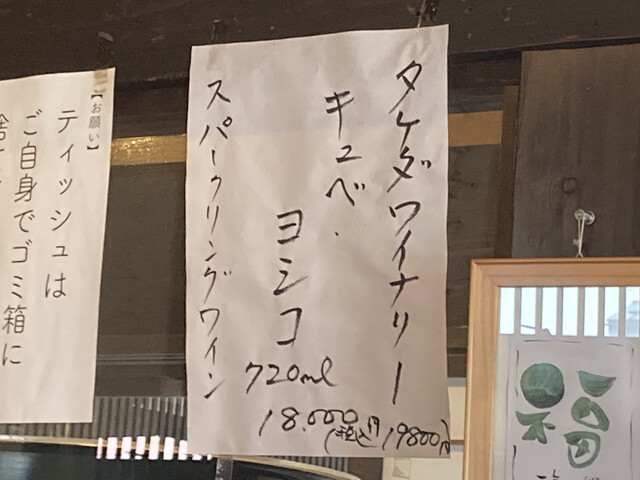 タケダワイナリー
キュベ・
ヨシコ
スパークリングワイン
720ml
18.000円
(税込19800円)
【お願い】
ティッシュは
ご自身でゴミ箱に
福